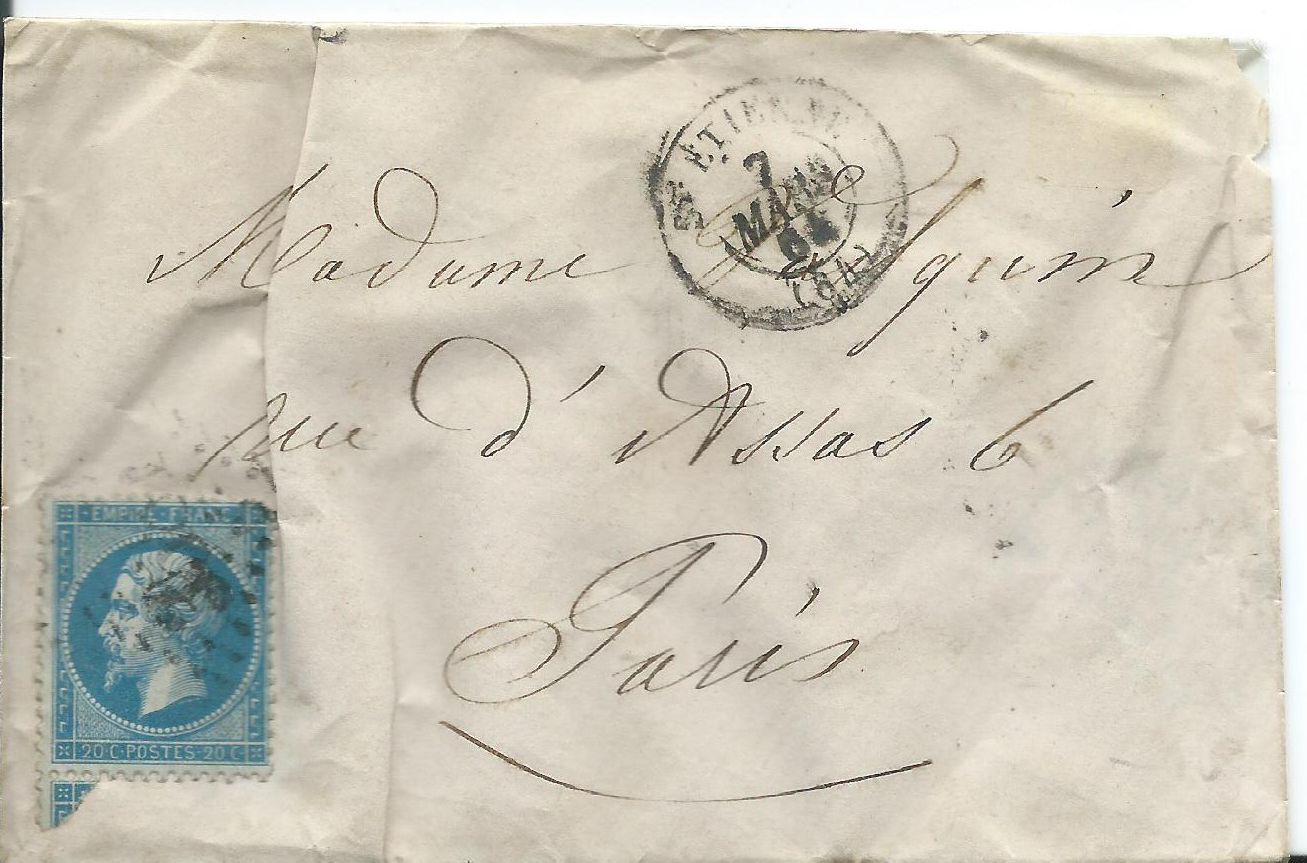 ST ETIENNE
7
MARS
64
(84)
Madame Jquem
rue d'Assas 6
Paris
EMPIRE · FRANC
20 C · POSTES · 20 C